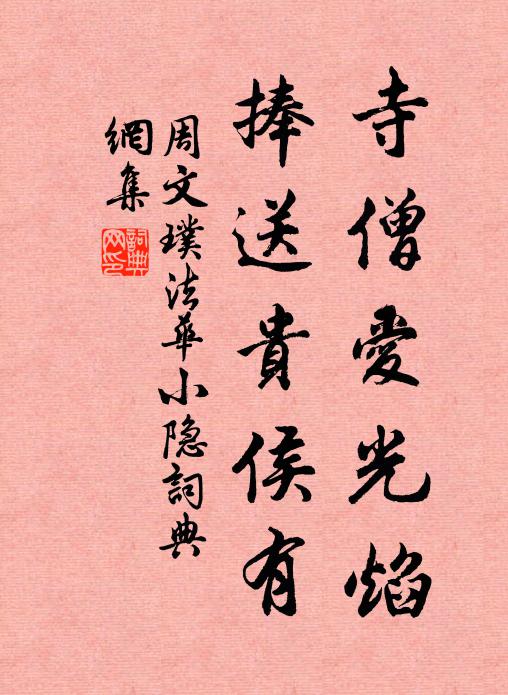 寺僧愛光焰
捧送貴侯有
周文璞法華小隐詞典
網集
詞典
网印